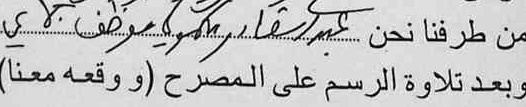 من طرفنا نحن عبد الستار موظف
وبعد تلاوة الرسم على المصرح (و وقعه معنا)